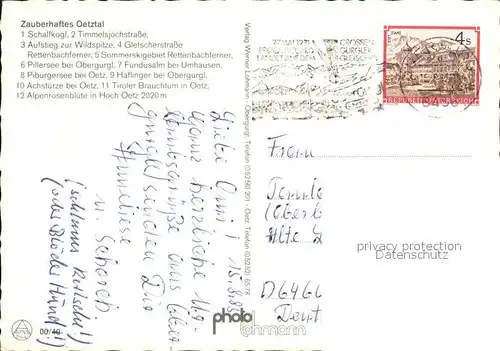 Zauberhaftes Oetztal
1 Schalfkogl, 2 Timmelsjochstraße,
3 Aufstieg zur Wildspitze, 4 Gletscherstraße
Rettenbachferner, 5 Sommerskigebiet Rettenbachferner,
6 Pillersee bei Obergurgl, 7 Fundusalm bei Umhausen,
8 Piburgersee bei Oetz, 9 Haflinger bei Obergurgl,
10 Achstürze bei Oetz, 11 Tiroler Brauchtum in Oetz,
12 Alpenrosenblüte in Hoch Oetz 2020 m
Verlag Werner Lohmann, Obergurgl, Telefon (05256) 201 - Oetz, Telefon (05252) 6578
27. MAI 1931
GROSSEN
GURGLER
LANDET AUF DEM
GLETSCHER
4 S
STAMS
REPUBLIK ÖSTERREICH
Liebe Omi! 15.8.
Ganz herzliche Ur-
laubsgrüße aus Ober-
gurgl senden Dir
Anneliese
u. Schorch
(schlimmer Kutscher!)
(oder Blöder Hund!!)
Frau
D6460
privacy protection
Datenschutz
00/40
photo
lohmann